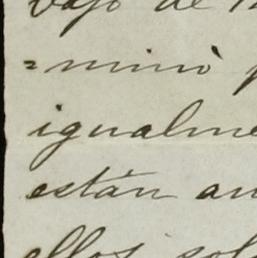 bajo de
=minó
igualme
están an
ellos sol